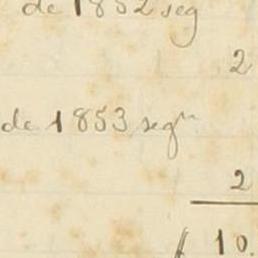 de 1852 seg
2
de 1853 segn
2
10.